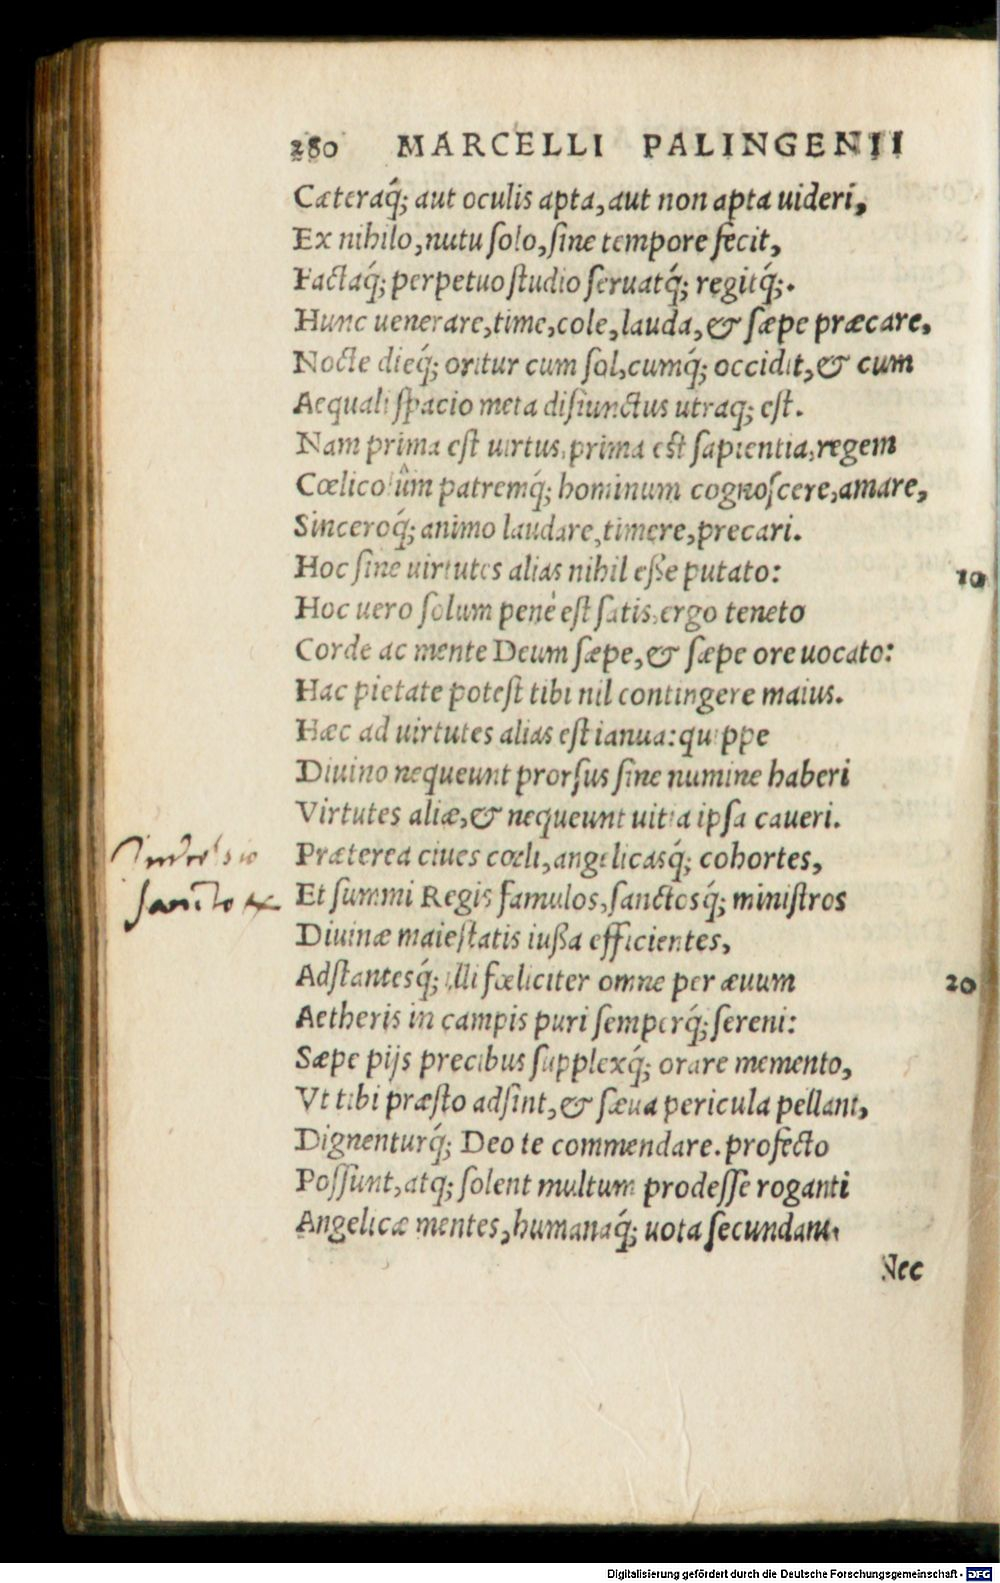 280 MARCELLI PALINGENII
Cæteraq́; aut oculis apta, aut non apta uideri,
Ex nihilo, nutu ſolo, ſine tempore fecit,
Factaq́; perpetuo ſtudio ſeruatq́; regitq́;.
Hunc uenerare, time, cole, lauda, & ſæpe præcare,
Nocte dieq́; oritur cum ſol, cumq́; occidit, & cum
Aequali ſpacio meta diſiunctus utraq; eſt.
Nam prima eſt uirtus, prima eſt ſapientia, regem
Cœlicolûm patremq́; hominum cognoſcere, amare,
Sinceroq́; animo laudare, timere, precari.
Hoc ſine uirtutes alias nihil eße putato: 10
Hoc uero ſolum penè eſt ſatis, ergo teneto
Corde ac mente Deum ſæpe, & ſæpe ore uocato:
Hac pietate poteſt tibi nil contingere maius.
Hæc ad uirtutes alias eſt ianua: quippe
Diuino nequeunt prorſus ſine numine haberi
Virtutes aliæ, & nequeunt uitia ipſa caueri.
Præterea ciues cœli, angelicasq́; cohortes,
Et ſummi Regis famulos, ſanctosq́; miniſtros
Diuinæ maieſtatis iußa efficientes,
Adſtantesq́; illi fœliciter omne per æuum 20
Aetheris in campis puri ſemperq́; ſereni:
Sæpe pijs precibus ſupplexq́; orare memento,
Vt tibi præſto adſint, & ſæua pericula pellant,
Dignenturq́; Deo te commendare. profecto
Poſſunt, atq; ſolent multum prodeſſe roganti
Angelicæ mentes, humanaq́; uota ſecundant.
Nec
Digitalisierung gefördert durch die Deutsche Forschungsgemeinschaft - DFG